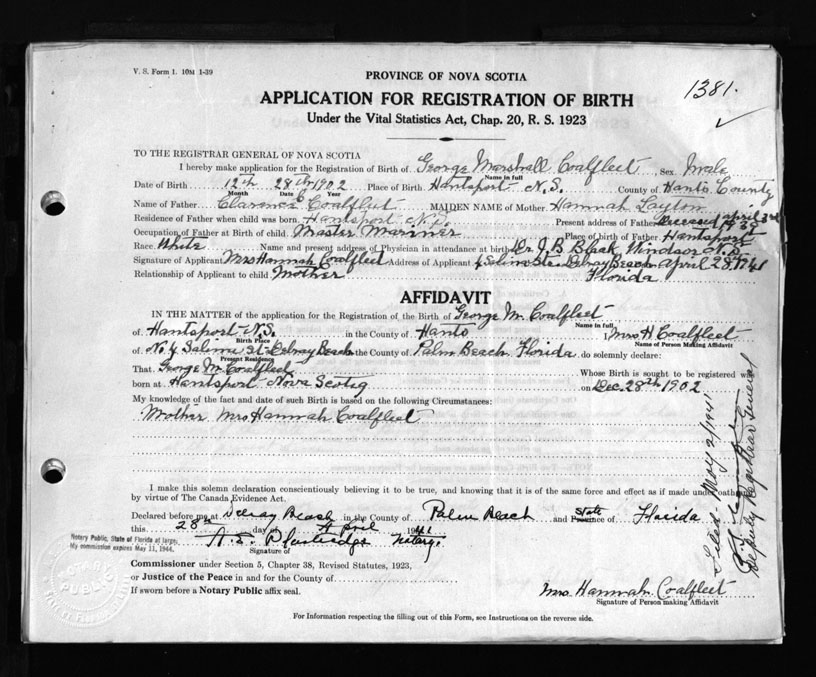 V. S. Form 1. 10M 1-39
1381.
PROVINCE OF NOVA SCOTIA
APPLICATION FOR REGISTRATION OF BIRTH
Under the Vital Statistics Act, Chap. 20, R. S. 1923
TO THE REGISTRAR GENERAL OF NOVA SCOTIA
I hereby make application for the Registration of Birth of George Marshall Coalfleet Sex Male
Name in full
Date of Birth 12th 28th 1902 Place of Birth Hantsport N.S. County of Hants County
Month Date Year
Name of Father Clarence Coalfleet MAIDEN NAME of Mother Hannah Layton
Residence of Father when child was born Hantsport N.S. Present address of Father Deceased April 3rd 1939
Occupation of Father at Birth of child Master Mariner Place of birth of Father Hantsport
Race White Name and present address of Physician in attendance at birth Dr J B Black Windsor N.S.
Signature of Applicant Mrs Hannah Coalfleet Address of Applicant 4 Salina St Delray Beach April 28th 1941
Relationship of Applicant to child Mother Florida
AFFIDAVIT
IN THE MATTER of the application for the Registration of the Birth of George M. Coalfleet
Name in full
of Hantsport N.S. in the County of Hants I, Mrs H Coalfleet
Birth Place Name of Person Making Affidavit
of No 4 Salina St Delray Beach in the County of Palm Beach Florida do solemnly declare:
Present Residence
That George M. Coalfleet Whose Birth is sought to be registered was
born at Hantsport Nova Scotia on Dec. 28th 1902
My knowledge of the fact and date of such Birth is based on the following Circumstances:
Mother Mrs Hannah Coalfleet
I make this solemn declaration conscientiously believing it to be true, and knowing that it is of the same force and effect as if made under oath
by virtue of The Canada Evidence Act.
Declared before me at Delray Beach in the County of Palm Beach and State Province of Florida
this 28th day of April 1941
Notary Public, State of Florida at large.
My commission expires May 11, 1944.
Notary
Signature of
Commissioner under Section 5, Chapter 38, Revised Statutes, 1923,
or Justice of the Peace in and for the County of
If sworn before a Notary Public affix seal.
Mrs. Hannah Coalfleet
Signature of Person making Affidavit
For Information respecting the filling out of this Form, see Instructions on the reverse side.
NOTARY PUBLIC
Filed May 2/1941
Deputy Registrar General